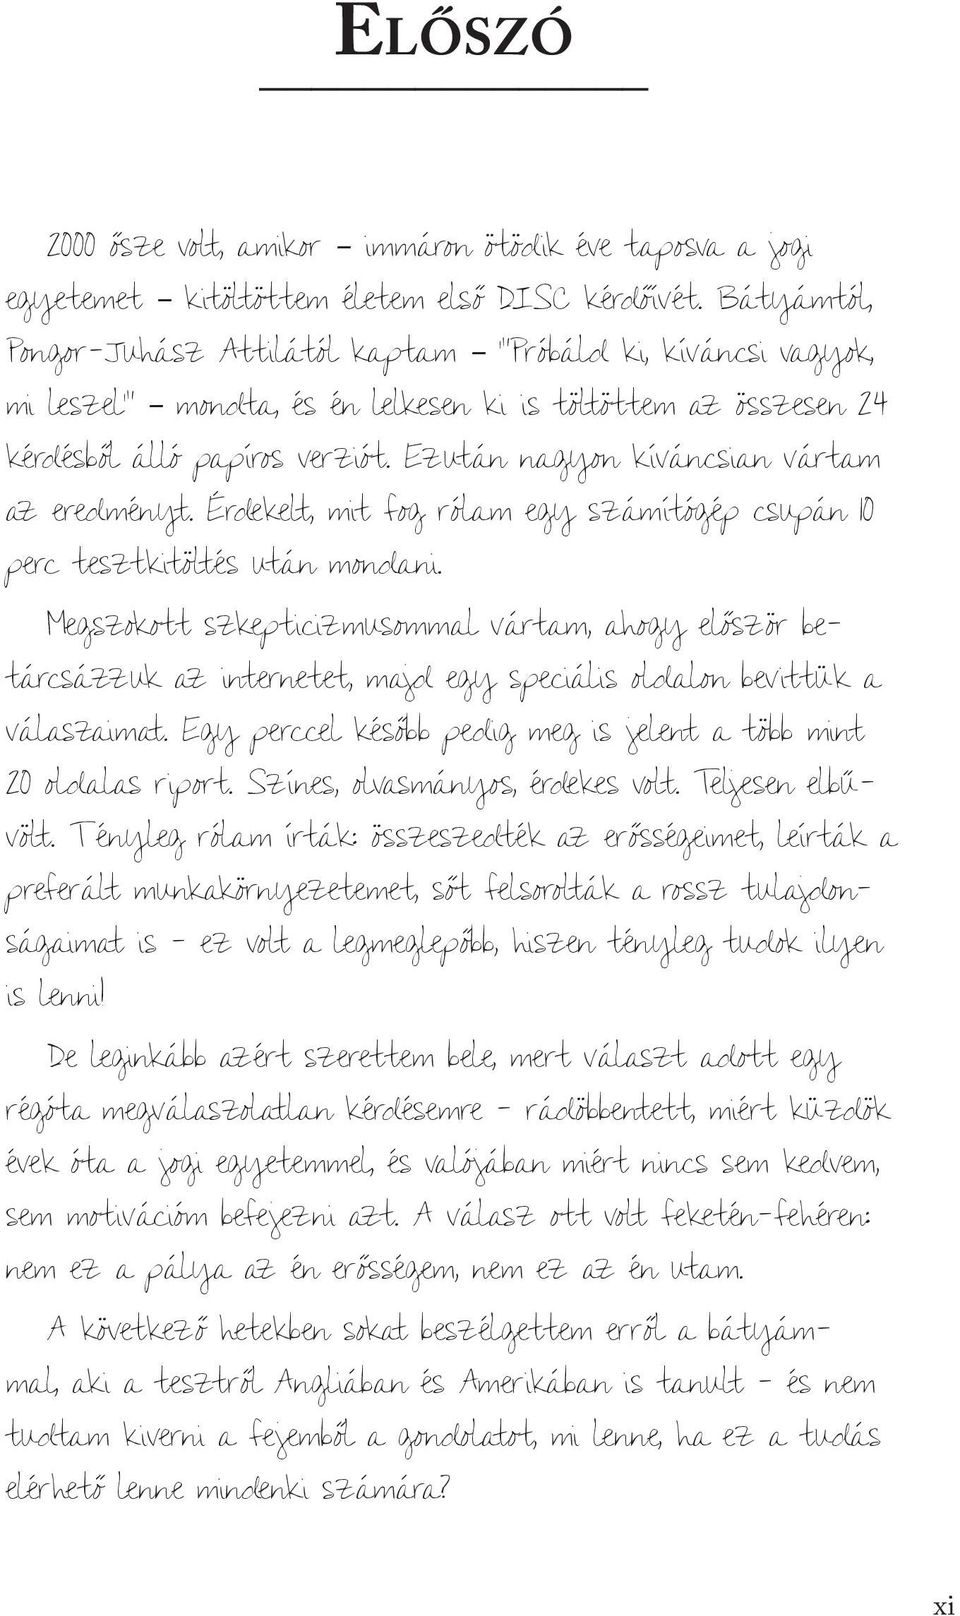 ELŐSZÓ
2000 ősze volt, amikor – immáron ötödik éve taposva a jogi
egyetemet – kitöltöttem életem első DISC kérdőívét. Bátyámtól,
Pongor-Juhász Attilától kaptam – "Próbáld ki, kíváncsi vagyok,
mi leszel" – mondta, és én lelkesen ki is töltöttem az összesen 24
kérdésből álló papíros verziót. Ezután nagyon kíváncsian vártam
az eredményt. Érdekelt, mit fog rólam egy számítógép csupán 10
perc tesztkitöltés után mondani.
Megszokott szkepticizmusommal vártam, ahogy először be-
tárcsázzuk az internetet, majd egy speciális oldalon bevittük a
válaszaimat. Egy perccel később pedig meg is jelent a több mint
20 oldalas riport. Színes, olvasmányos, érdekes volt. Teljesen elbű-
völt. Tényleg rólam írták: összeszedték az erősségeimet, leírták a
preferált munkakörnyezetemet, sőt felsorolták a rossz tulajdon-
ságaimat is - ez volt a legmeglepőbb, hiszen tényleg tudok ilyen
is lenni!
De leginkább azért szerettem bele, mert választ adott egy
régóta megválaszolatlan kérdésemre - rádöbbentett, miért küzdök
évek óta a jogi egyetemmel, és valójában miért nincs sem kedvem,
sem motivációm befejezni azt. A válasz ott volt feketén-fehéren:
nem ez a pálya az én erősségem, nem ez az én utam.
A következő hetekben sokat beszélgettem erről a bátyám-
mal, aki a tesztről Angliában és Amerikában is tanult - és nem
tudtam kiverni a fejemből a gondolatot, mi lenne, ha ez a tudás
elérhető lenne mindenki számára?
xi